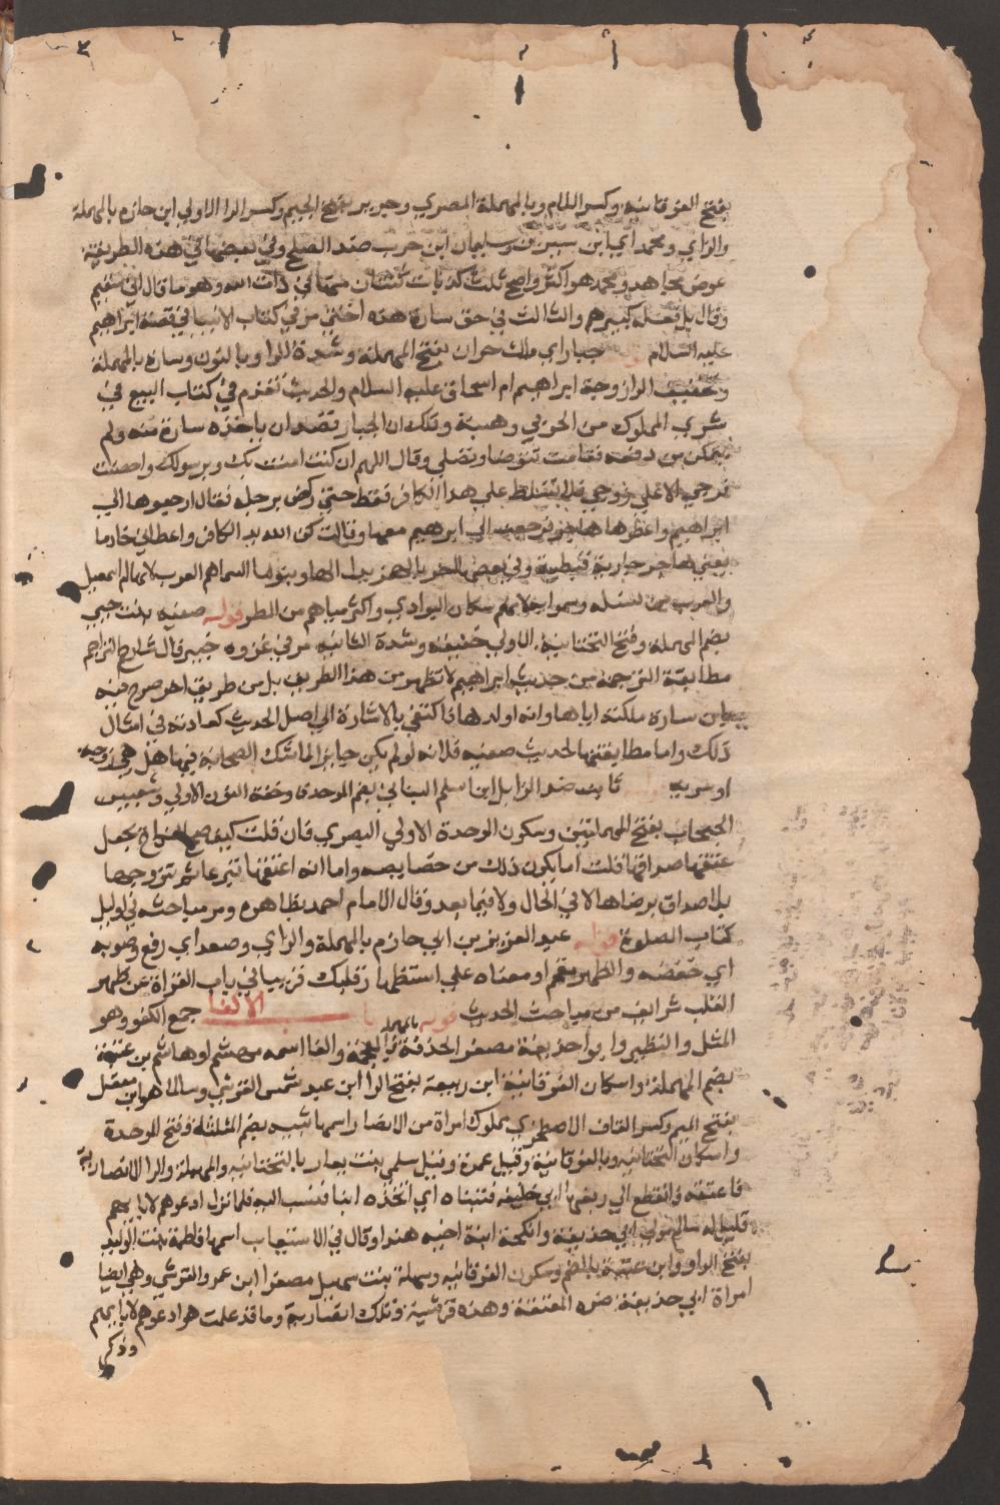 بفتح الفوقانية وكسر اللام وبالمهملة المصري وجرير بفتح الجيم وكسر الرا الاولي ابن حازم بالمهملة
والزاي ومحمد اي ابن سيرين وسليمان ابن حرب ضد الصلح وفي بعضها في هذه الطريقة
عوض مجاهد ومحمد هو اكثر واصح ثلث كذبات ثنتان منها في ذات الله وهو ما قال اني سقيم
وقال بل فعله كبيرهم والثالث في حق سارة هذه اختي مر في كتاب الانبيا في قصة ابراهيم
عليه السلام جبار اي ملك حران بفتح المهملة وشدة الرا وبالنون وسارة بالمهملة
وتخفيف الرا زوجة ابراهيم ام اسحاق عليه السلام والحديث تقدم في كتاب البيع في
شري المملوك من الحربي وهبته وتلك ان الجبار قصد ان ياخذه سارة منه ولم
يتمكن من دفعه فقامت تتوضا وتصلي وقال اللهم ان كنت امنت بك وبرسولك واحصنت
فرجي الا علي زوجي فلا تسلط علي هذا الكافر فغط حتي ركض برجله فقال ارجعوها الي
ابراهيم واعطوها هاجر فرجعت الي ابرهيم معها وقالت كف الله يد الكافر واعطاني خادما
يعني هاجر جارية قبطية وفي بعض اجر بالهمز بدل الها وبنو ما السما هم العرب لانهم ام اسمعيل
والعرب من نسله وسموا به لانهم سكان البوادي واكثر مياههم من المطر قوله صفيه بنت حيي
بضم المهملة وفتح التحتانية الاولي خفيفة وشدة الثانية مر في غزوه خيبر قال شارح التراجم
مطابقة الترجمة من حديث ابراهيم لا تظهر من هذا الطريق بل من طريق اخر صرح فيه
بان سارة ملكته اياها وانه اولدها فاكتفي بالاشارة الي اصل الحديث كعادته في امثال
ذلك واما مطابقتها لحديث صفيه فلانه لو لم يكن جايزا لما شك الصحابة فيها هل هي زوجة
او سرية ثابت ضد الزايل ابن اسلم البناني بضم الموحدة وخفة النون الاولي وشعيب
الحبحاب بفتح المهملتين وسكون الموحدة الاولي البصري فان قلت كيف صح النكاح بجعل
عتقها صداقها قلت اما يكون ذلك من خصايصه واما انه اعتقها تبرعا ثم تزوجها
بلا صداق برضاها لا في الحال ولا فيما بعد وقال الامام احمد بظاهره ومر مباحثه في اوايل
كتاب الصلوة قوله عبد العزيز بن ابي حازم بالمهملة والزاي وصعد اي رفع وصوبه
اي خفضه والظهر مقحم او معناه علي استظهار قلبك قريبا في باب القراة عن ظهر
القلب شرايف من مباحث الحديث قوله باب الاكفا جمع الكفو وهو
المثل والنظير وابو حذيفة مصغر الحذفة بالمهملة والمعجمة والفا اسمه مهشم او هاشم بن عتبة
بضم المهملة واسكان الفوقانية ابن ربيعة بفتح الرا ابن عبد شمس القرشي وسالم هو ابن معقل
بفتح الميم وكسر القاف الاصطخري مملوك امراة من الانصار اسمها ثبيته بضم المثلثة وفتح الموحدة
واسكان التحتانيه وبالفوقانية وقيل عمرة وقيل سلمي بنت يعار بالتحتانيه والمهملة والرا الانصارية
فاعتقته وانقطع الي ربيعها ابي حذيفة فتبناه اي اتخذه ابنا فنسب اليه فلما نزل ادعوهم لابايهم
قيل له سالم مولي ابي حذيفة وانكحه ابنة اخيه هندا وقال في الاستيعاب اسمها فاطمة بنت الوليد
بفتح الواو وابن عتبة بالضم وسكون الفوقانيه وسهلة بنت سهيل مصغرا ابن عمرو القرشي وهي ايضا
امراة ابي حذيفة ضره المعتقة وهذه قرشية وتلك انصارية وما قد علمت هو ادعوهم لابايهم
وذكر